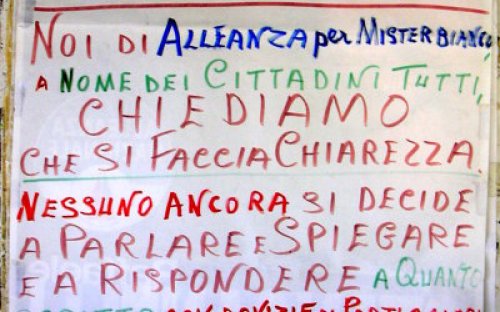 NOI DI ALLEANZA per MISTERBIANCO,
A NOME DEI CITTADINI TUTTI,
CHIEDIAMO
CHE SI FACCIA CHIAREZZA.
NESSUNO ANCORA SI DECIDE
A PARLARE E SPIEGARE
E A RISPONDERE A QUANTO